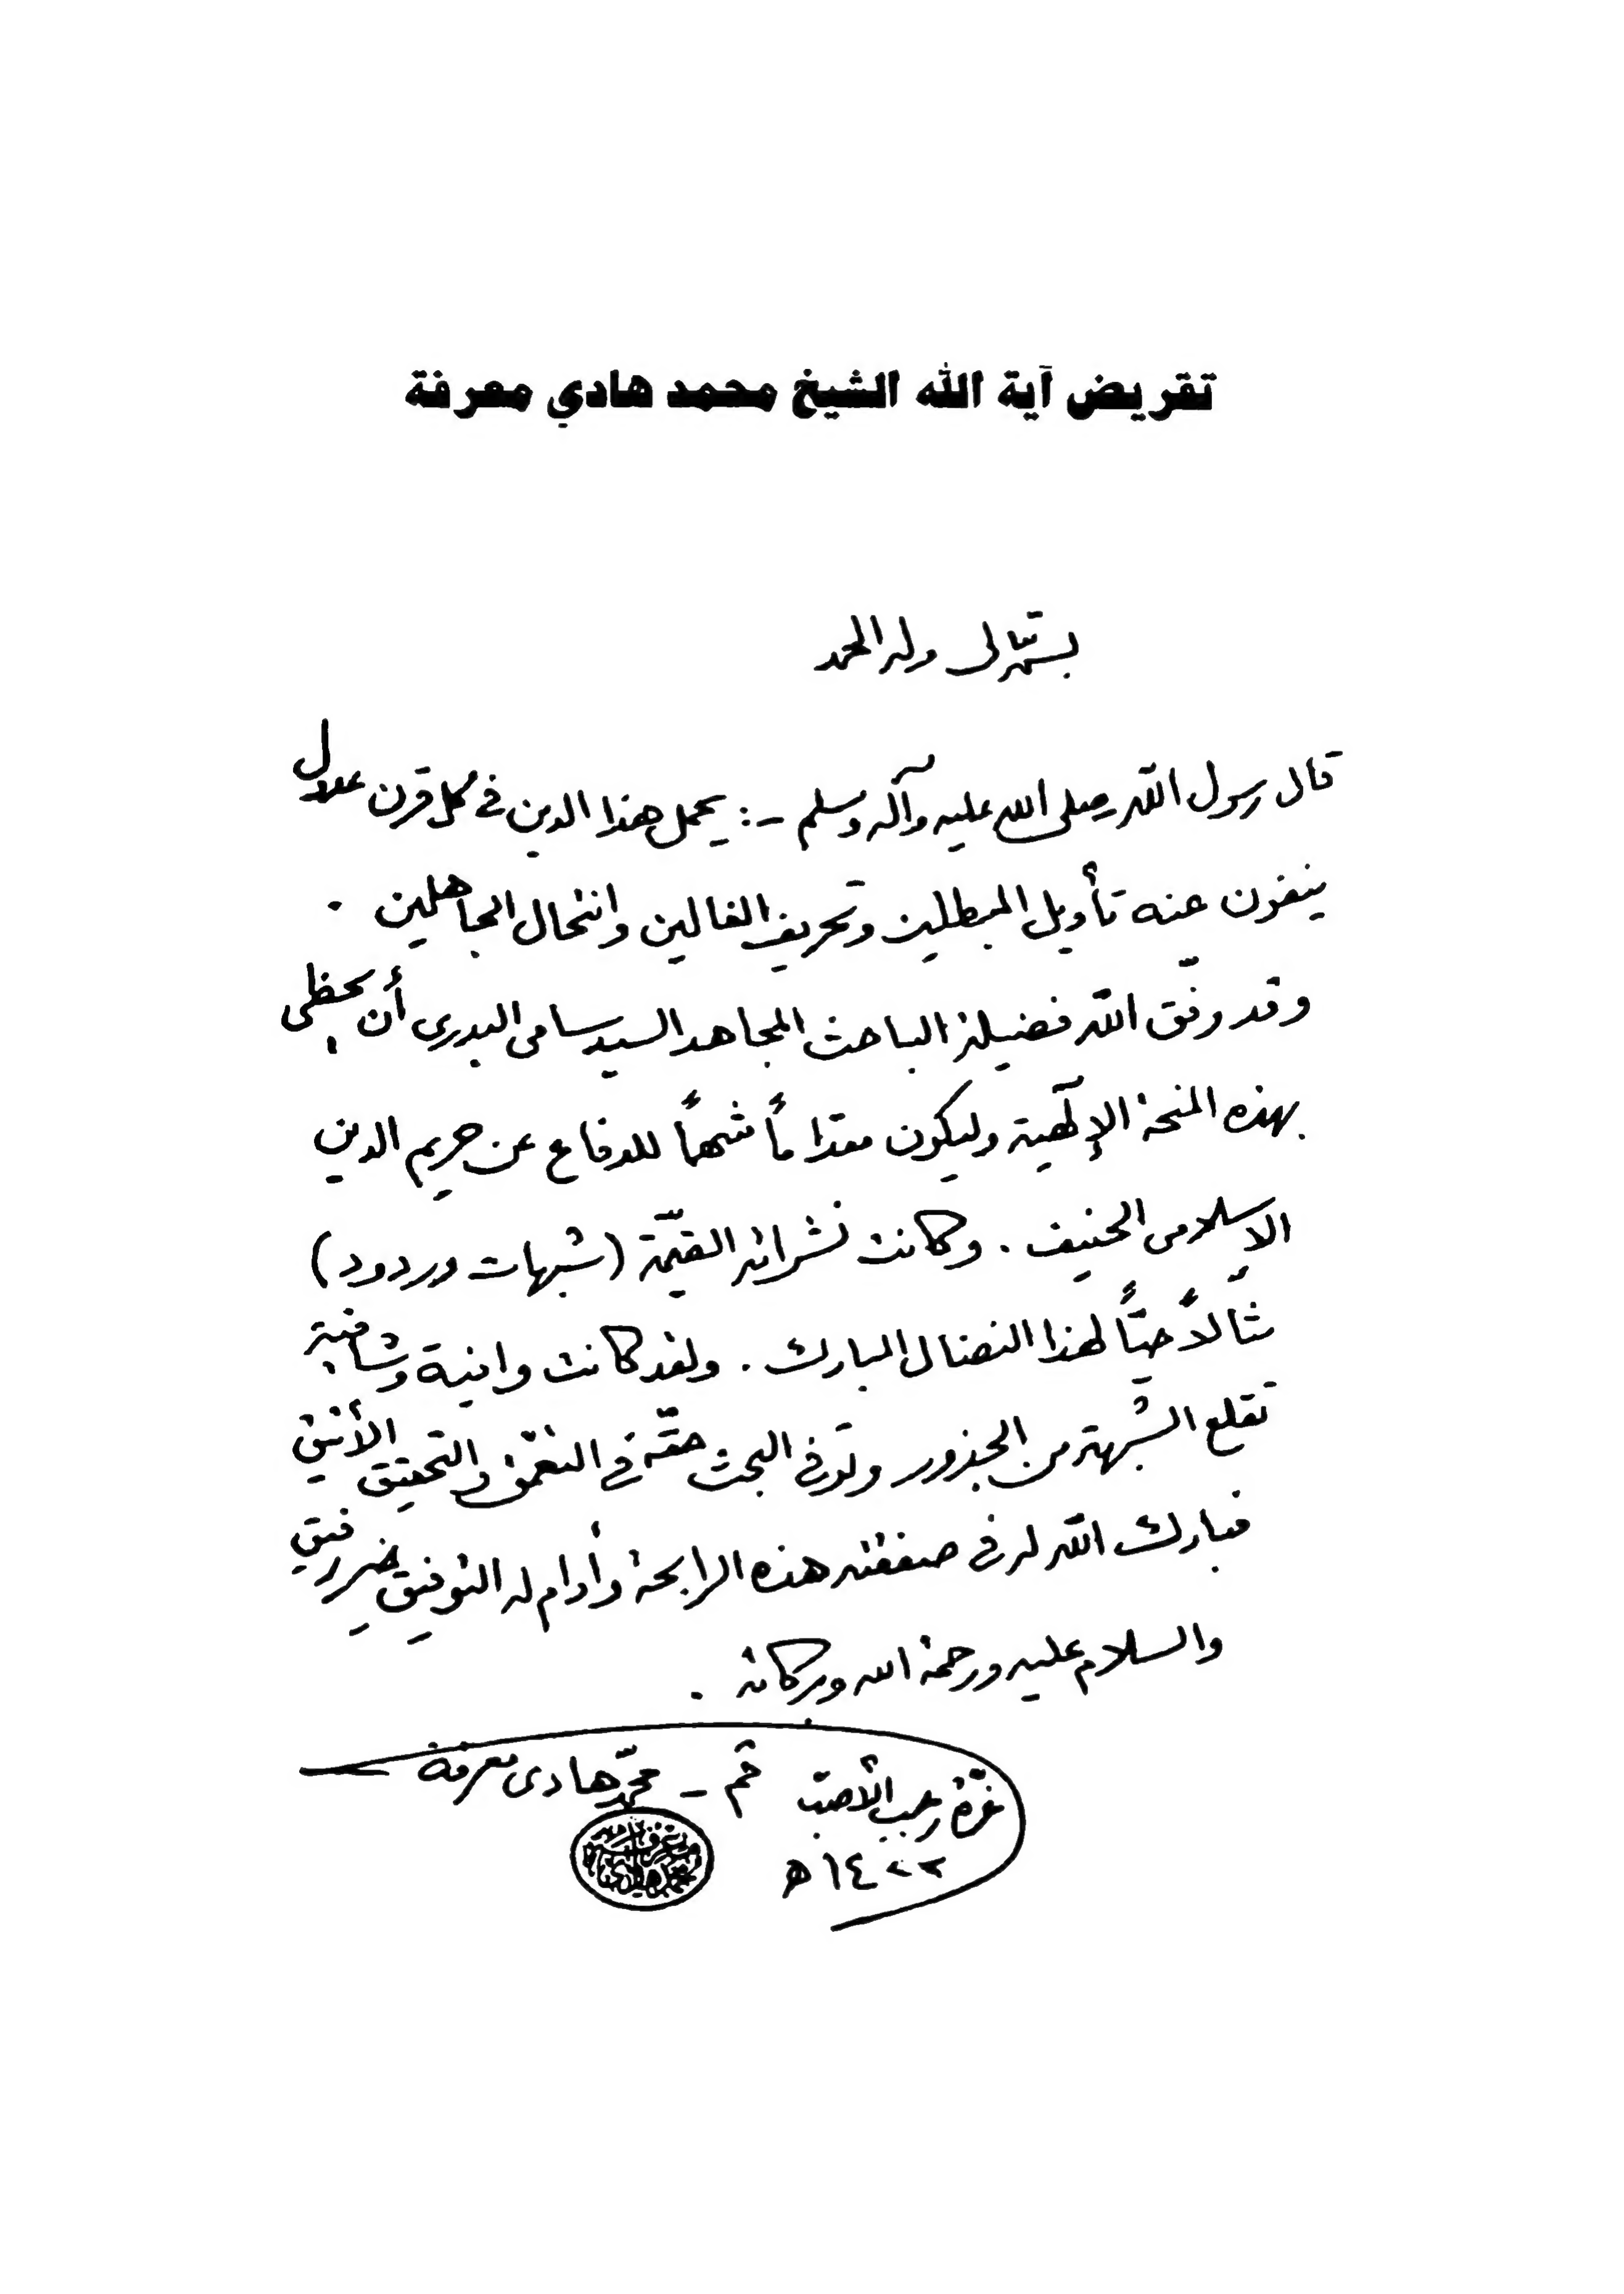 تقريض آية الله الشيخ محمد هادي معرفة
بسمه تعالى وله الحمد
قال رسول الله صلى الله عليه وآله وسلم -: يحمل هذا الدين في كل قرن عدول
ينفون عنه تأويل المبطلين وتحريف الغالين وانتحال الجاهلين .
وقد وفّق الله فضيلة الباحث المجاهد السيد سامى البدرى أن يحظى
بهذه المنحة الإلٓهية وليكون مقداماً شهماً للدفاع عن حريم الدين
الاسلامى الحنيف . وكانت نشراته القيّمة (شبهات وردود)
مثالاً حيّاً لهذا النضال المبارك . ولقد كانت وافية وشافية
تقلع الشبهة من الجذور وتوفى البحث حقّه في التعمّق والتحقيق الأنيق
فبارك الله له في صفقته هذه الرابحة وأدام له التوفيق خير رفيق
والسلام عليه ورحمة الله وبركاته .
غرّة رجب الأصبّ قم - محمّد هادى معرفة
١٤٢٢ هـ